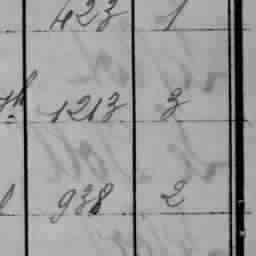 423 1
1213 3
938 2